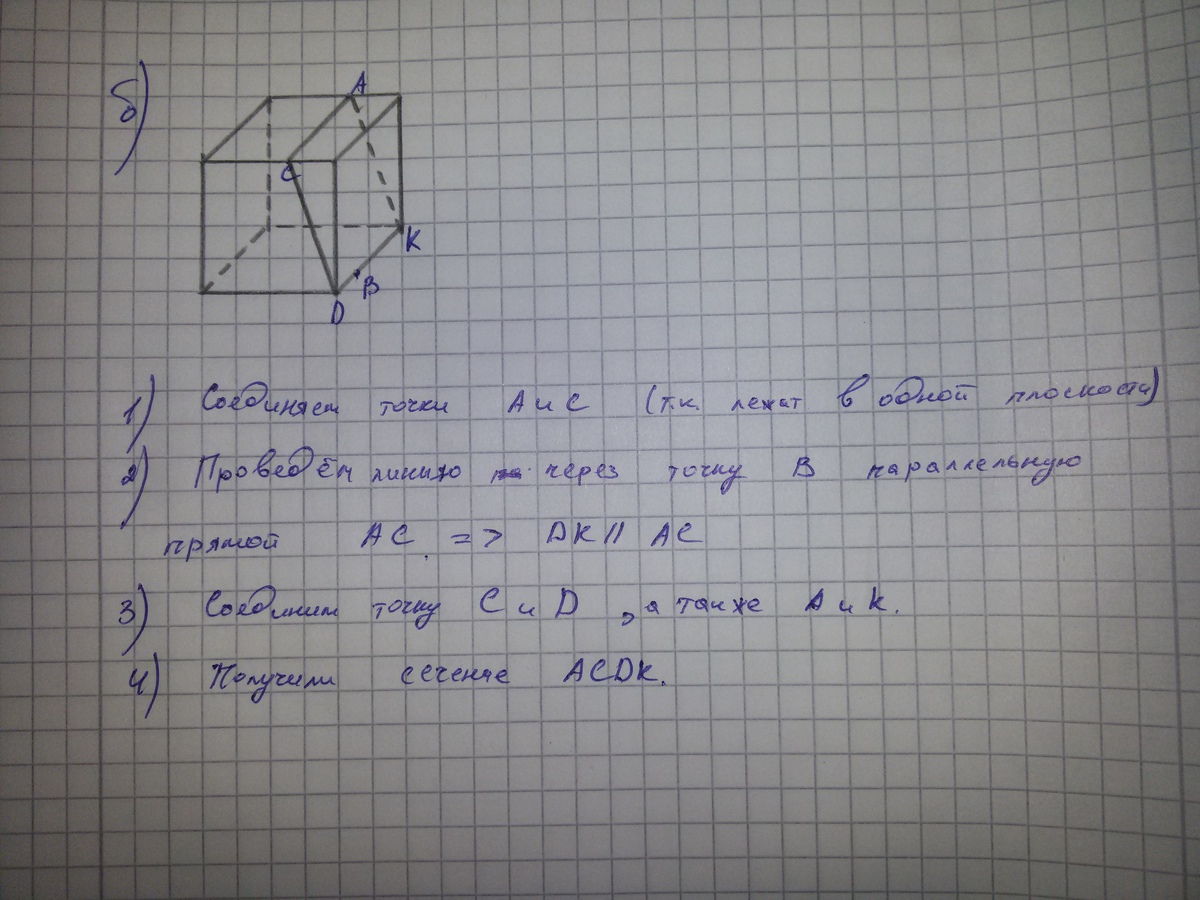 б)
A
C
K
B
D
1) Соединяем точки A и C (т.к. лежат в одной плоскости)
2) Проведём линию через точку B параллельную
прямой AC => DK || AC
3) Соединим точку C и D, а также A и K.
4) Получили сечение ACDK.